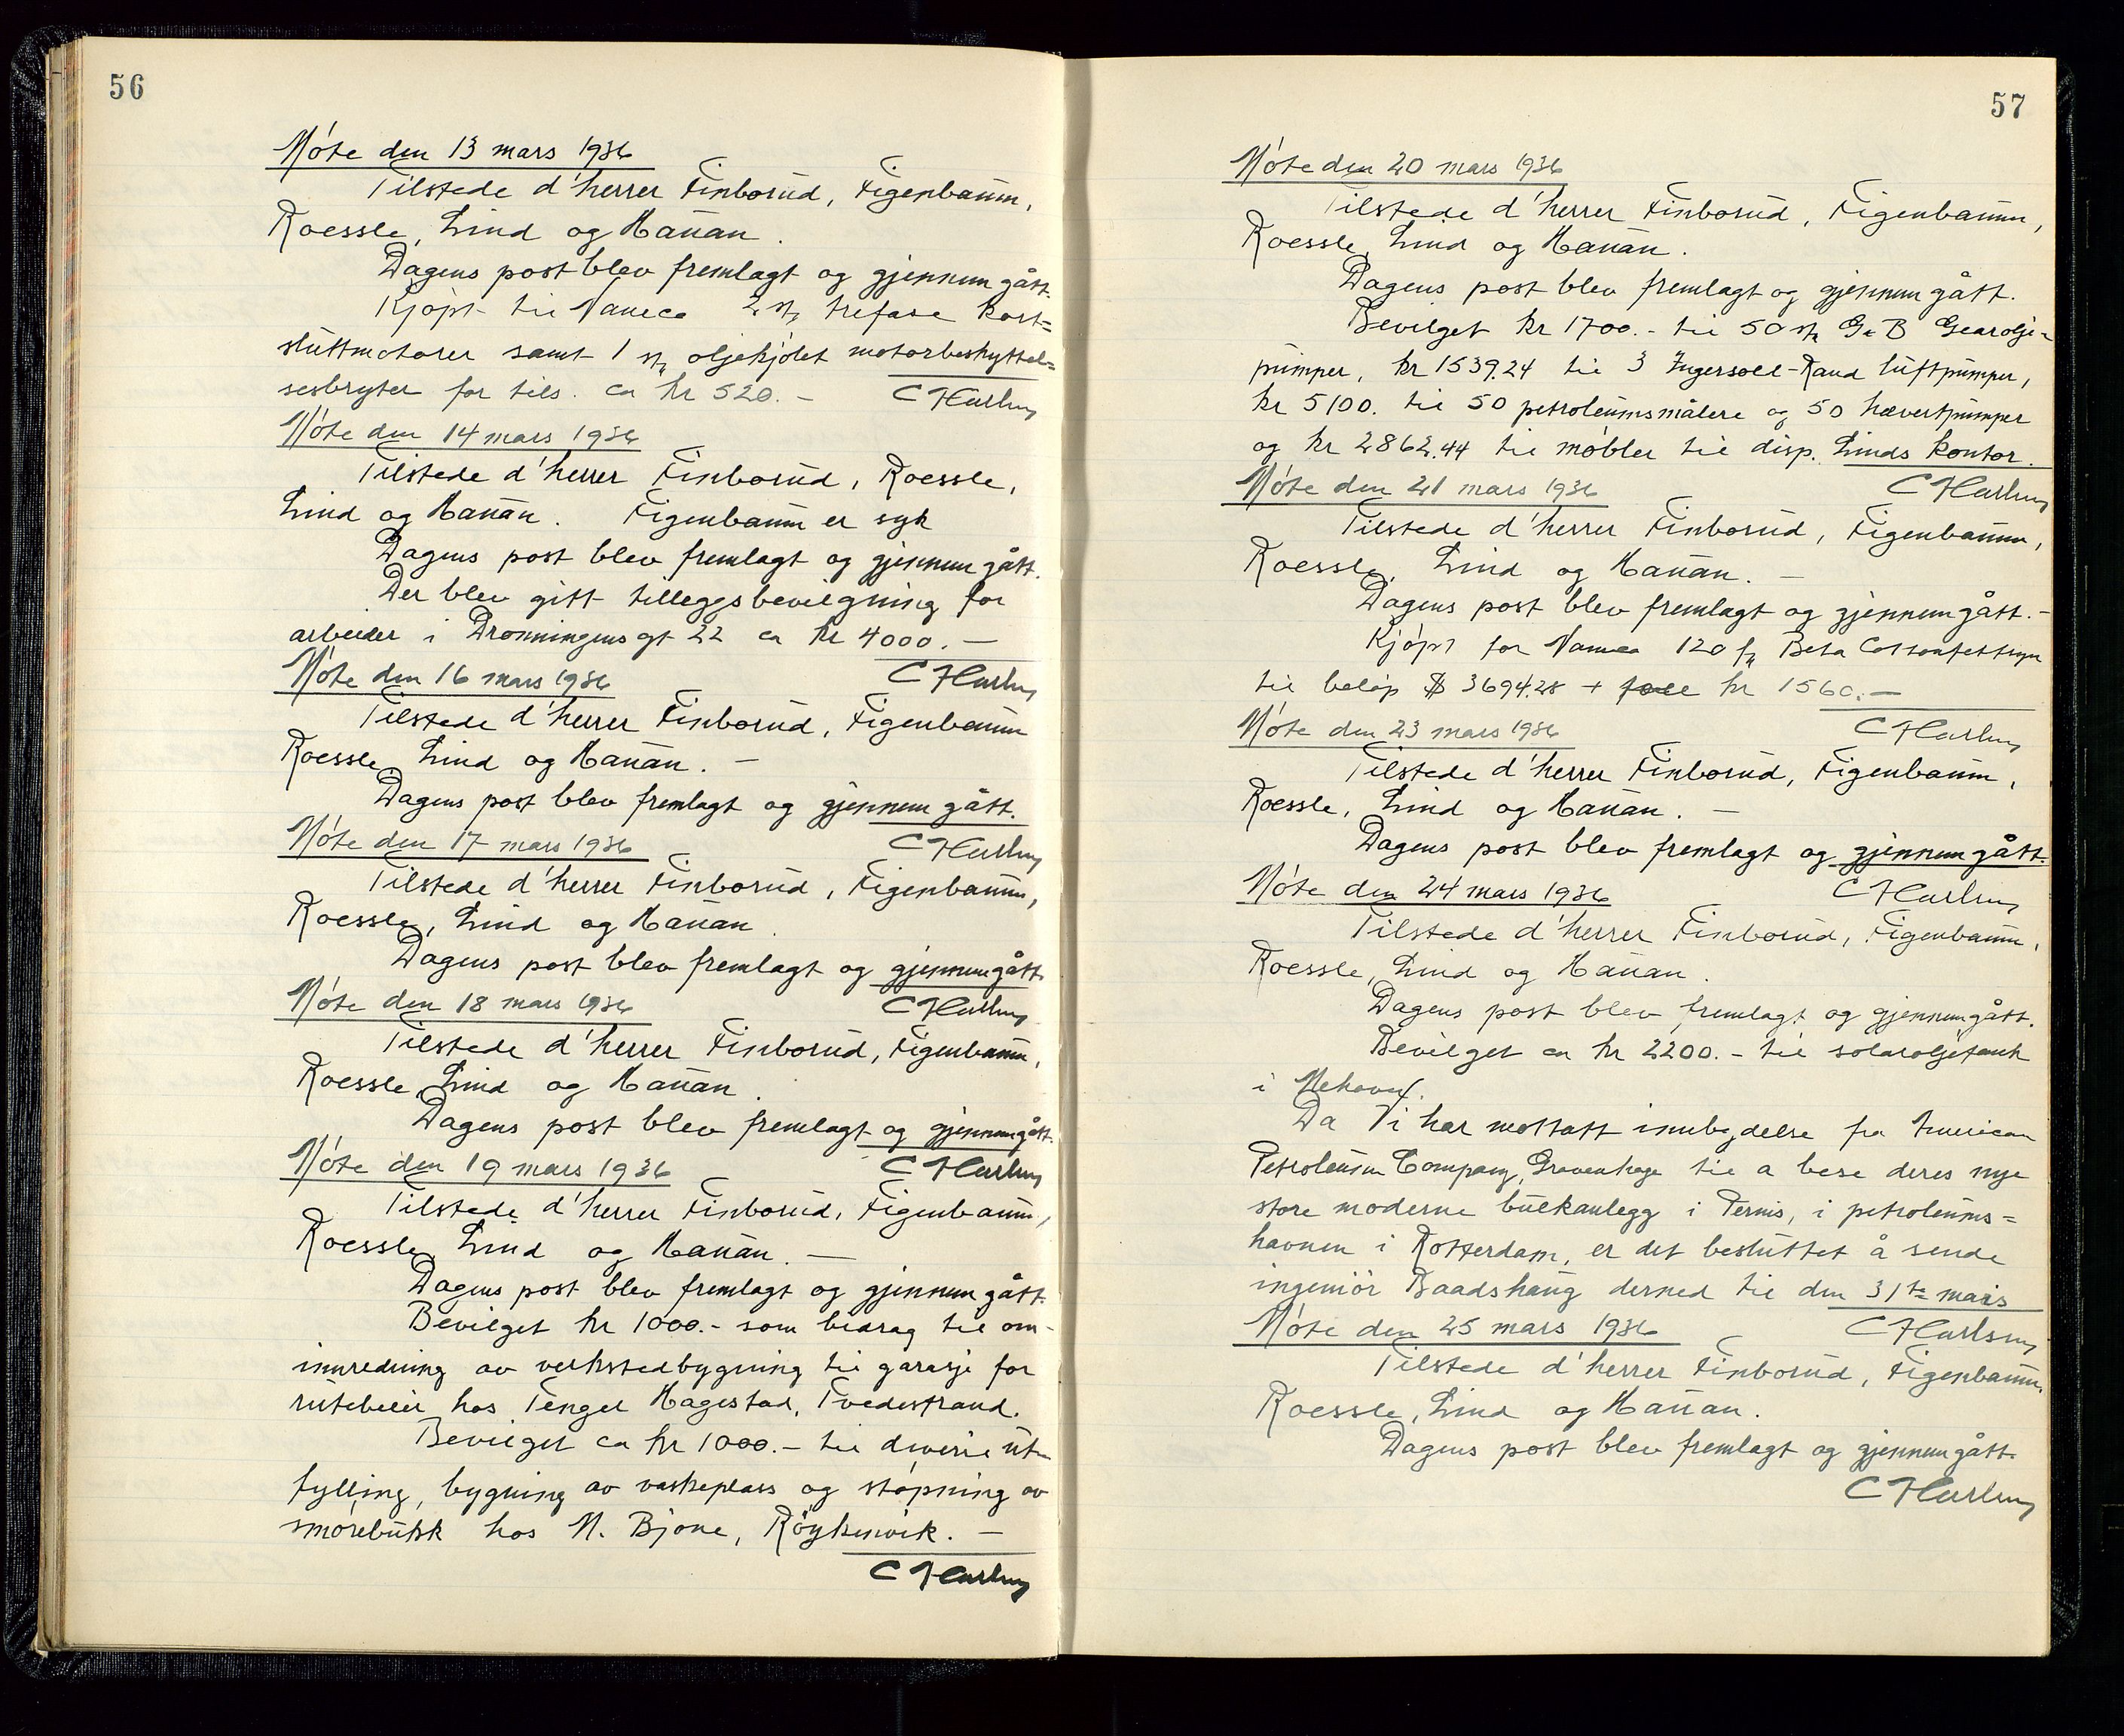 56
Møte den 13 mars 1936
Tilstede d'herrer Finborud, Figenbaum,
Roessle, Lind og Hauan.
Dagens post blev fremlagt og gjennemgått.
Kjøpt til Vameca 2 stk trefase kort=
sluttmotorer samt 1 stk oljekjølet motorbeskyttel=
sesbryter for tils. ca kr 520.-
Møte den 14 mars 1936
Tilstede d'herrer Finborud, Roessle,
Lind og Hauan. Figenbaum er syk
Dagens post blev fremlagt og gjennemgått.
Der blev gitt tilleggsbevilgning for
arbeider i Dronningensgt 22 ca kr 4000.—
Møte den 16 mars 1936
Tilstede d'herrer Finborud, Figenbaum
Roessle, Lind og Hauan. —
Dagens post blev fremlagt og gjennemgått.
Møte den 17 mars 1936
Tilstede d'herrer Finborud, Figenbaum,
Roessle, Lind og Hauan.
Dagens post blev fremlagt og gjennemgått.
Møte den 18 mars 1936
Tilstede d'herrer Finborud, Figenbaum,
Roessle, Lind og Hauan.
Dagens post blev fremlagt og gjennemgått.
Møte den 19 mars 1936
Tilstede d'herrer Finborud, Figenbaum,
Roessle, Lind og Hauan. —
Dagens post blev fremlagt og gjennemgått.
Bevilget kr 1000.- som bidrag til om-
innredning av verkstedbygning til garasje for
rutebiler hos Tengel Hagestad, Tvedestrand.
Bevilget ca kr 1000.- til diverse ut-
fylling, bygning av vaskeplass og støpning av
smørebukk hos N. Bjone, Røykenvik. —
57
Møte den 20 mars 1936
Tilstede d'herrer Finborud, Figenbaum,
Roessle, Lind og Hauan.
Dagens post blev fremlagt og gjennemgått.
Bevilget kr 1700.- til 50 stk G&B Gearolje=
pumper, kr 1539.24 til 3 Ingersoll-Rand luftpumper,
kr 5100. til 50 petroleumsmålere og 50 hævertpumper
og kr 2862.44 til møbler til disp. Linds kontor.
Møte den 21 mars 1936
Tilstede d'herrer Finborud, Figenbaum,
Roessle, Lind og Hauan. —
Dagens post blev fremlagt og gjennemgått.-
Kjøpt for Vameca 120 Beta
til beløp $ 3694.28 + kr 1560.—
Møte den 23 mars 1936
Tilstede d'herrer Finborud, Figenbaum,
Roessle, Lind og Hauan. —
Dagens post blev fremlagt og gjennemgått.
Møte den 24 mars 1936
Tilstede d'herrer Finborud, Figenbaum,
Roessle, Lind og Hauan.
Dagens post blev fremlagt og gjennemgått.
Bevilget ca kr 2200.- til solaroljetank
i Mehavn.
Da Vi har mottatt innbydelse fra American
Petroleum Company, Gravenhage til a bese deres nye
store moderne bulkanlegg i Pernis, i petroleums=
havnen i Rotterdam, er det besluttet å sende
ingeniør Baadshaug derned til den 31te mars
Møte den 25 mars 1936
Tilstede d'herrer Finborud, Figenbaum,
Roessle, Lind og Hauan.
Dagens post blev fremlagt og gjennemgått.